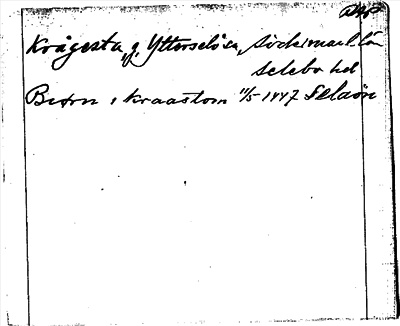 Krågesta g. Ytterselösn, Södermanl. län
Selebo hd
Biørn i kraastom 11/5 1447 Selaön